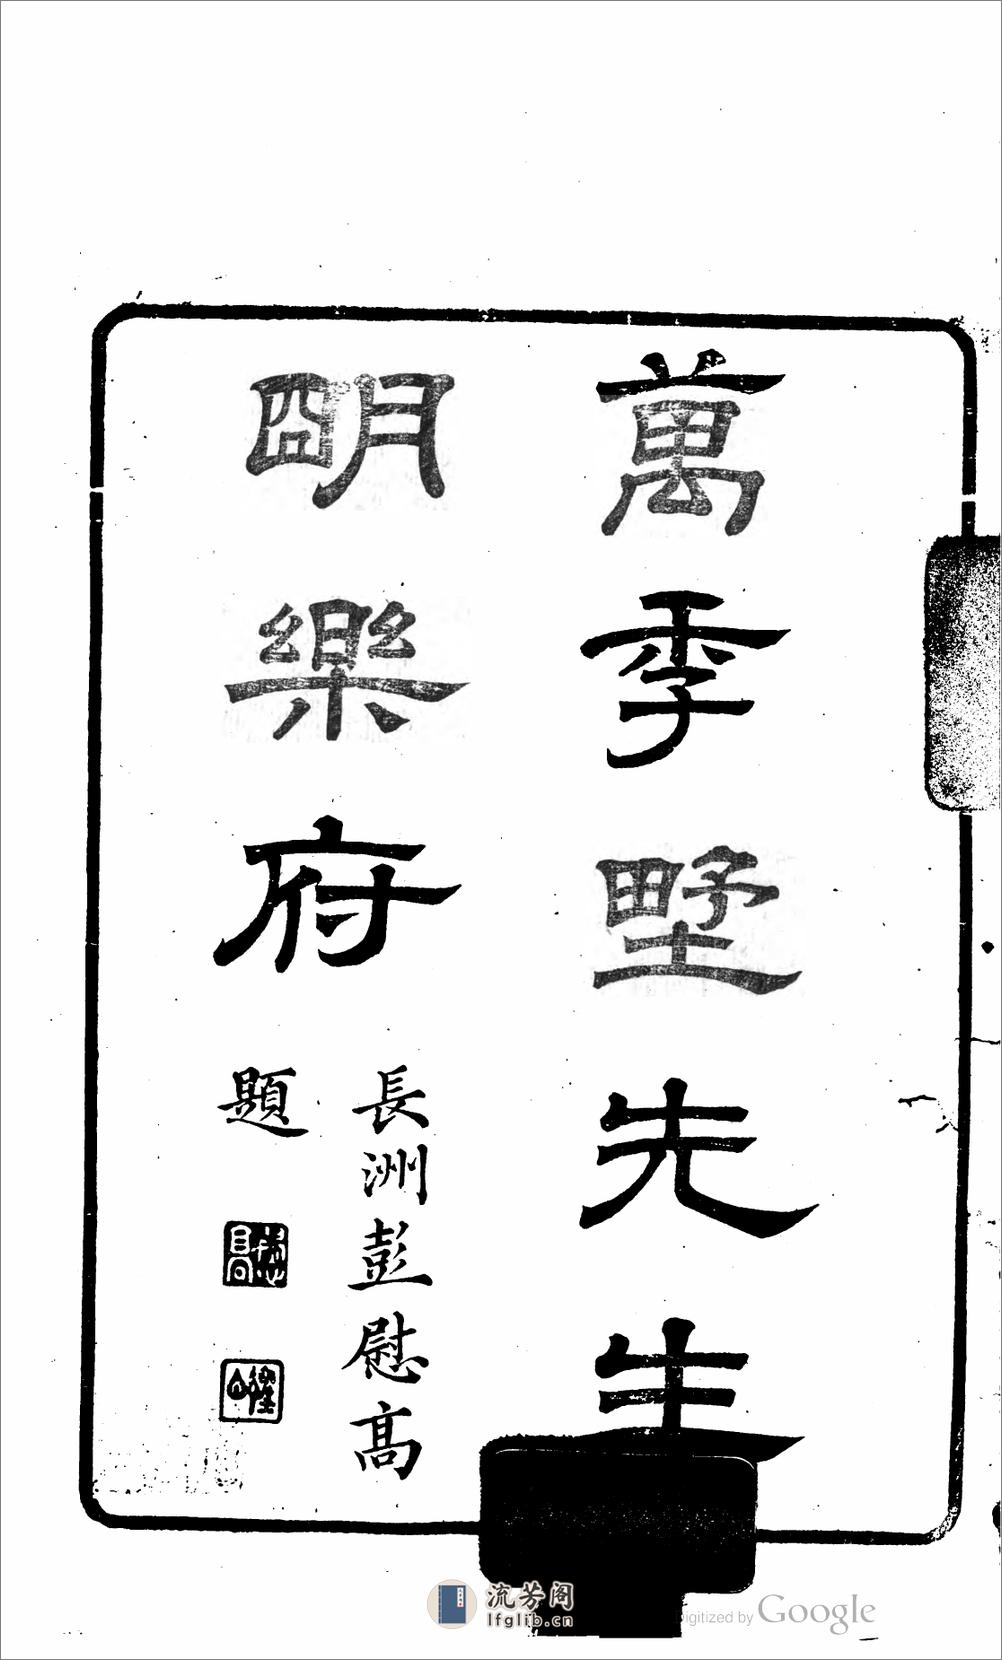 萬季墅先生
明樂府
長洲彭慰高
題
流芳阁
lfglib.cn
igitized by Google